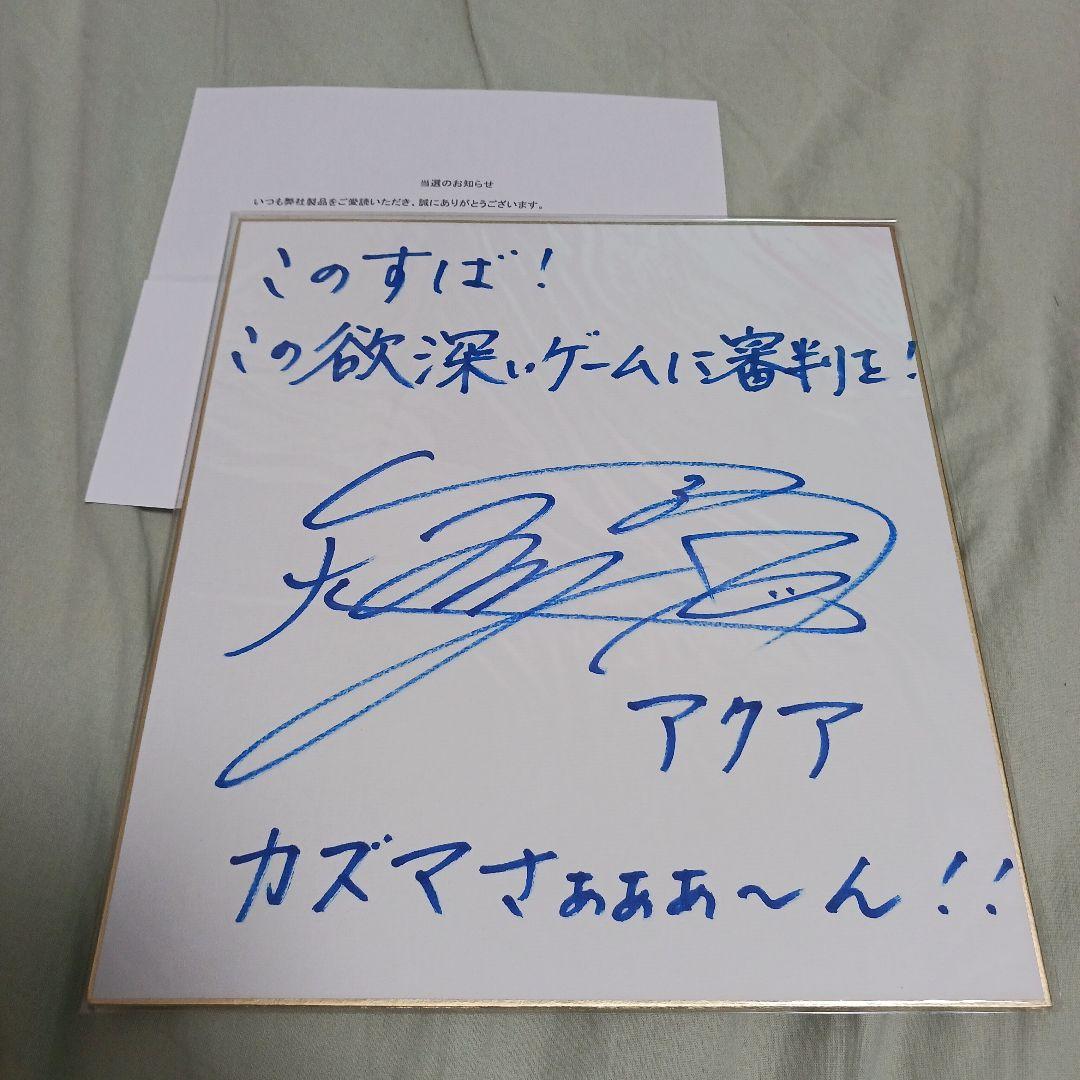 当選のお知らせ
いつも弊社製品をご愛読いただき、誠にありがとうございます。
このすば!
この欲深いゲームに審判を!
アクア
カズマさぁぁぁ〜ん!!